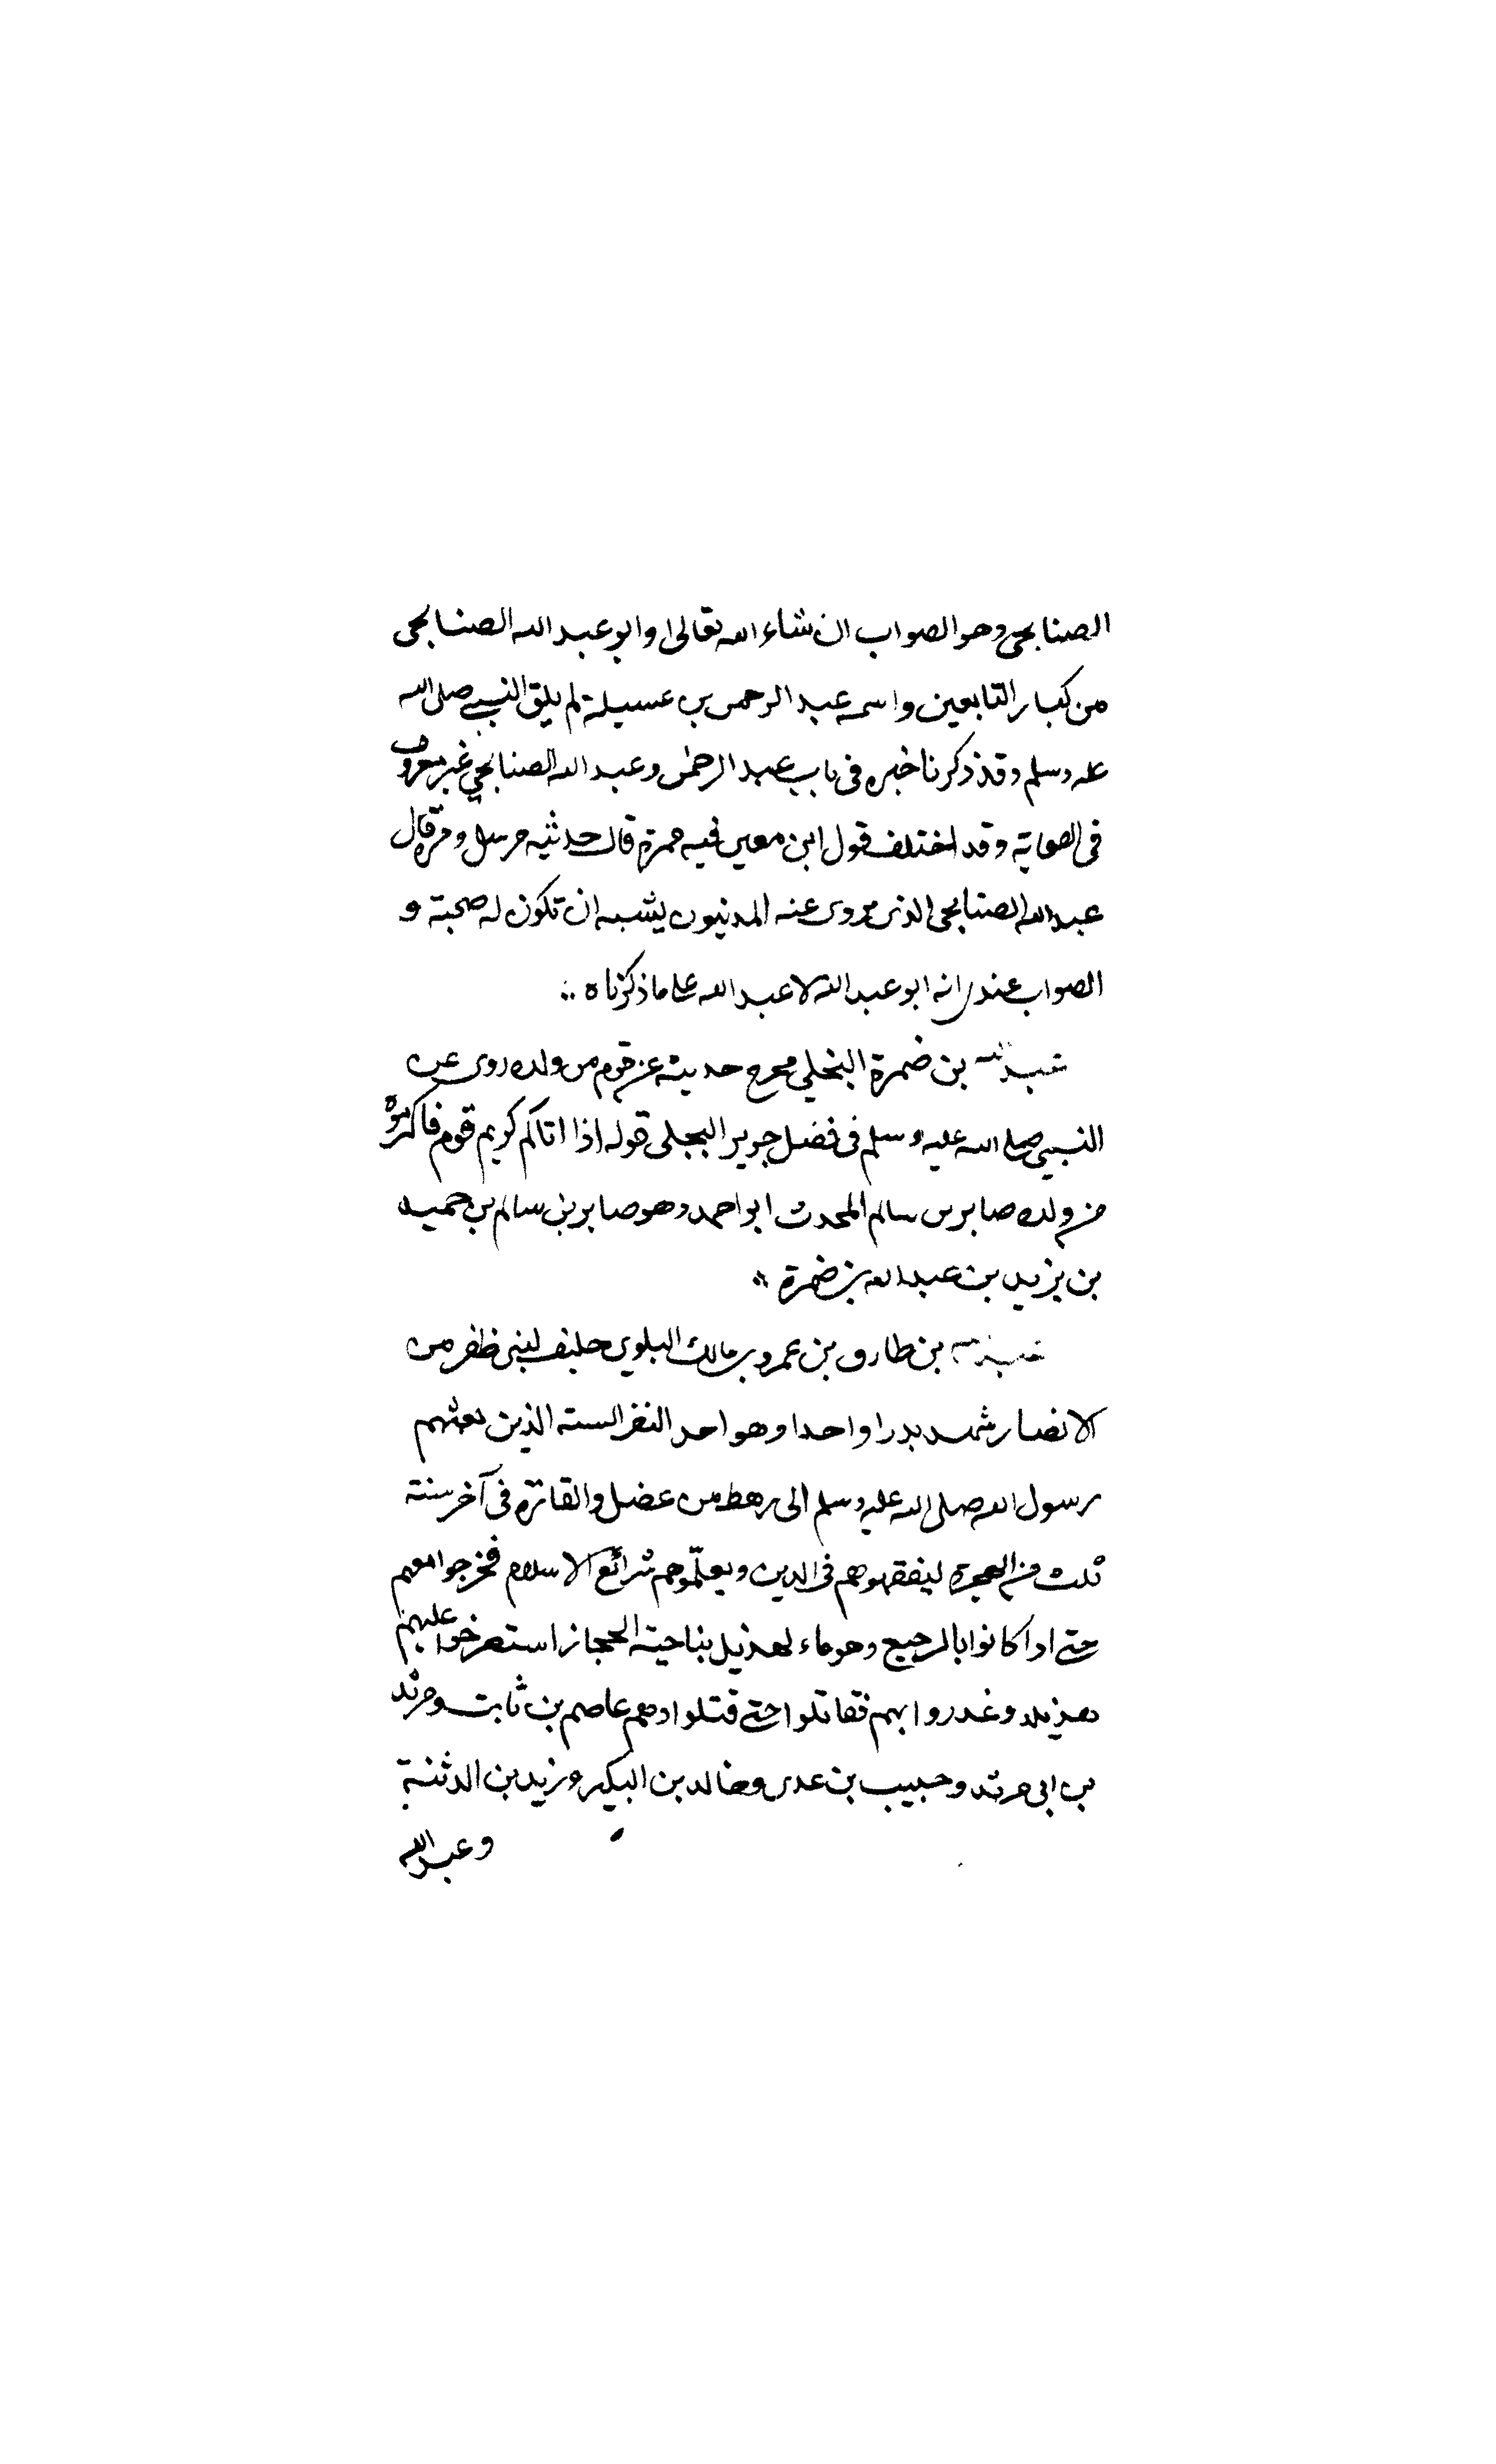 الصنابحى وهو الصواب ان شاء الله تعالى وابو عبد الله الصنابحى
من كبار التابعين واسمه عبد الرحمن بن عسيلة لم يلق النبى صلى الله
عله وسلم وقد ذكرنا خبره فى باب عبد الرحمن وعبد الله الصنابحى غير معروف
فى الصحابة وقد اختلف قول ابن معين فيه فمرة قال حديثه مرسل ومرة قال
عبد الله الصنابحى الذى يروى عنه المدنيون يشبه ان تكون له صحبة و
الصواب عندى انه ابو عبد الله لا عبد الله على ما ذكرناه
عبد الله بن ضمرة البجلى مخرج حديثه عن قوم من ولده روى عن
النبى صلى الله عليه وسلم فى فضل جرير البجلى قوله اذا اتاكم كريم قوم فاكرموه
من ولده صابر بن سالم المحدث ابو احمد وهو صابر بن سالم بن حميد
بن يزيد بن عبد الله بن ضمرة
عبد الله بن طارق بن عمرو بن مالك البلوى حليف لبنى ظفر من
الانصار شهد بدرا واحدا وهو احد النفر الستة الذين بعثهم
رسول الله صلى الله عليه وسلم الى رهط من عضل والقارة فى آخر سنة
ثلث من الهجرة ليفقهوهم فى الدين ويعلّموهم شرائع الاسلام فخرجوا معهم
حتى اذا كانوا بالرجيع وهو ماء لهذيل بناحية الحجاز استصرخوا عليهم
هذيلا وغدروا بهم فقاتلوا حتى قتلوا وهم عاصم بن ثابت ومرثد
بن ابى مرثد وخبيب بن عدى وخالد بن البكير وزيد بن الدثنة
وعبد الله